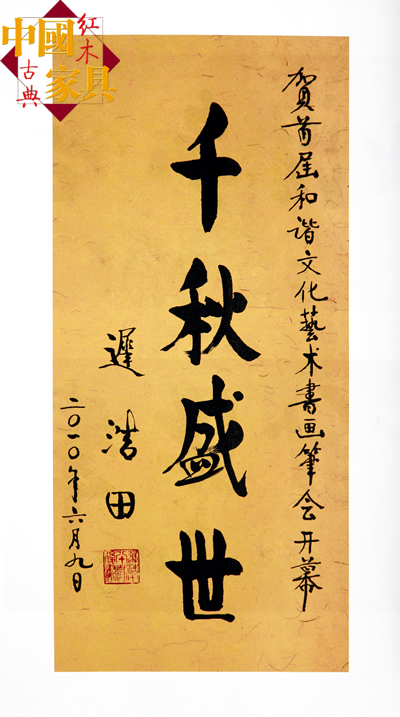 中國家具
红木
古典
贺首届和谐文化藝术書画筆会开幕
千秋盛世
遲浩田
二〇一〇年六月九日